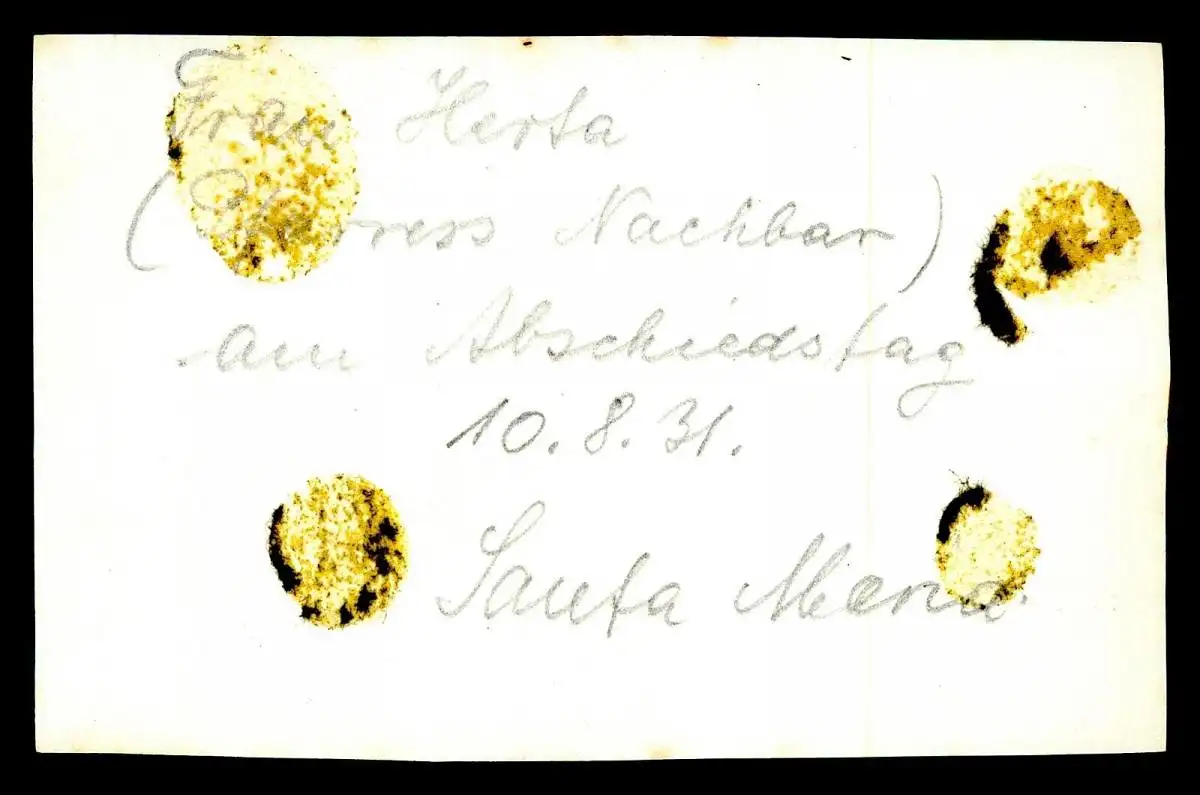 Frau Herta
( Nachbar)
am Abschiedstag
10.8.31.
Santa Mena